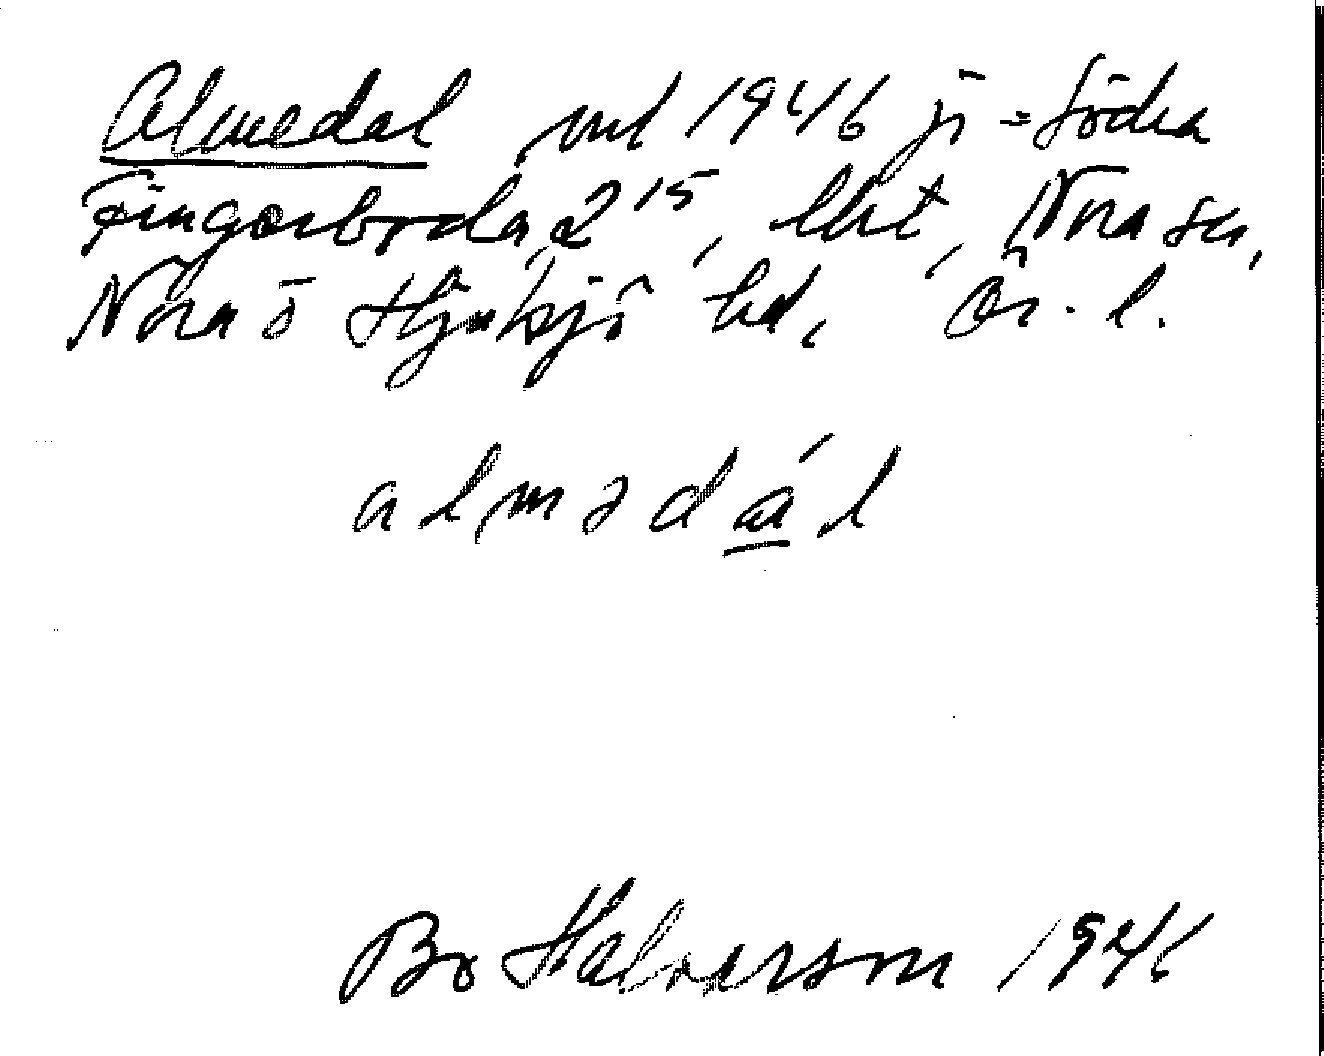 Almedal uml 1946 ji = Södra
Fingerboda 2¹⁵, lht, Nora sn,
Nora o Hjulsjö hd, Ör. l.
almədá̲l
Bo Halvarson 1946